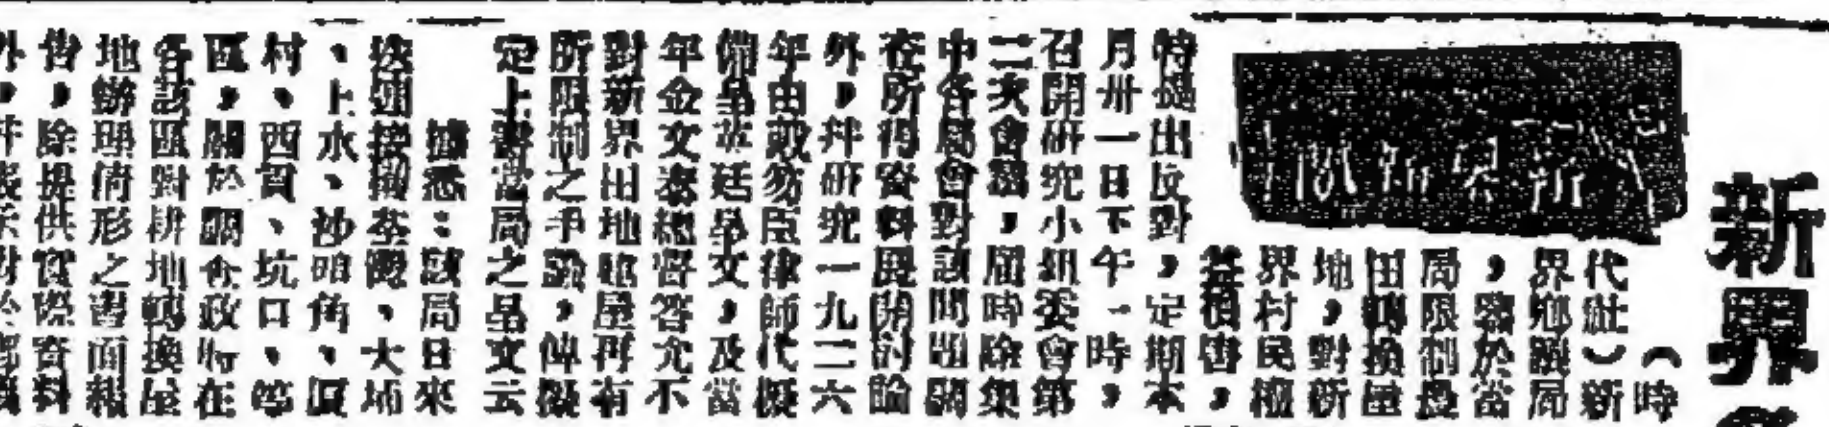 新界
（時
代社）新
界鄉議局
，鑒於當
局限制農
田轉換屋
地，對新
界村民權
益損害，
特提出反對，定期本
月卅一日下午一時，
召開研究小組委會第
二次會議，屆時除集
中各局會對該問題關
在所得資料展開討論
外，并研究一九二六
年由戴勞臣律師代擬
備呈英廷呈文，及當
年金文泰總督答允不
對新界田地轉屋再有
所限制之手，俾擬
定上書當局之呈文云
據悉：該局日來
迭連接獲荃灣、大埔
、上水、沙頭角、厦
村、西貢、坑口、等
區，關於調查政府在
各該區對耕地轉換屋
地辦理情形之書面報
告，除提供實際資料
外，并表示對於